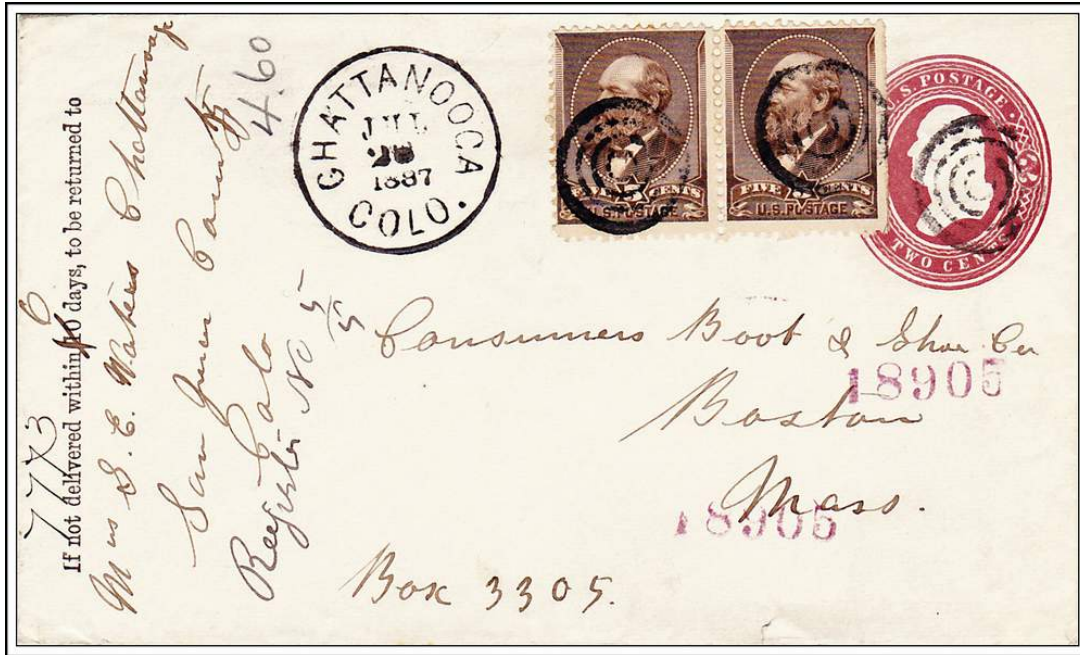 If not delivered within 10 days, to be returned to
6
7773
Mrs S. E. Waters Chattanooga
San Juan County
Colo
Register No 55
4.60
CHATTANOOCA
JUL
28
1887
COLO.
FIVE 5 CENTS
U.S. POSTAGE
FIVE 5 CENTS
U.S. POSTAGE
U.S. POSTAGE
TWO CENTS
Consumers Boot & Shoe Co
18905
Boston
Mass.
18905
Box 3305.